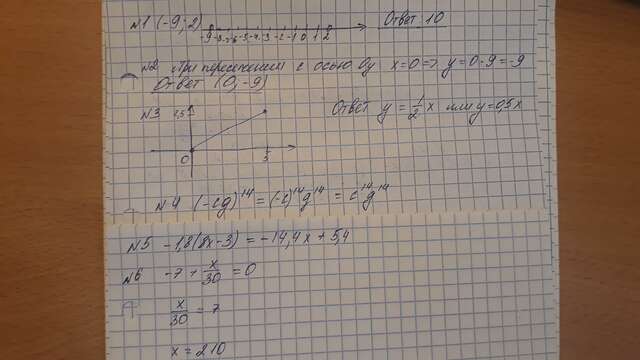 №1 (-9; 2) Ответ: 10
-9 -8 -7 -6 -5 -4 -3 -2 -1 0 1 2
№2 При пересечении с осью Oy x=0 => y=0-9=-9
Ответ (0, -9)
№3 2,5 Ответ y = 1/2 x или y=0,5x
0 5
№4 (-cg)^14 = (-c)^14 g^14 = c^14 g^14
№5 -1,8(8x-3) = -14,4x + 5,4
№6 -7 + x/30 = 0
x/30 = 7
x = 210